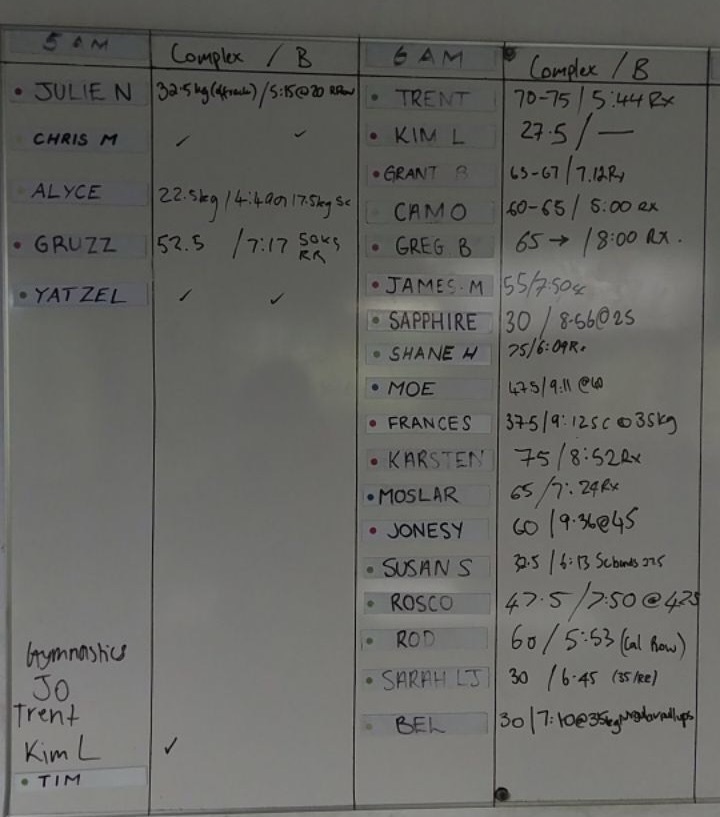 5 AM
Complex / B
JULIE N 32.5kg / 5:15@20
CHRIS M ✓ ✓
ALYCE 22.5kg / 4:49 17.5kg Sc
GRUZZ 52.5 / 7:17 50kg
RR
YATZEL ✓ ✓
Gymnastics
JO
Trent
Kim L ✓
TIM
6 AM
Complex / B
TRENT 70-75 / 5:44 Rx
KIM L 27.5 / —
GRANT B 63-67 / 7.12 Rx
CAMO 60-65 / 5:00 RX
GREG B 65 → / 8:00 RX.
JAMES.M 55/7:50
SAPPHIRE 30 / 8.56@25
SHANE H 75/6:09 Rx
MOE 47.5/9:11 @40
FRANCES 37.5/9:12 SC @ 35kg
KARSTEN 75 / 8:52 Rx
MOSLAR 65 / 7:24 RX
JONESY 60 / 9.36@45
SUSAN S 32.5 / 6:13 Sc bands 27.5
ROSCO 47.5 / 7:50 @ 42.5
ROD 60 / 5:53 (Cal Row)
SARAH LJ 30 / 6.45 (35/RR)
BEL 30 / 7:10@35kg